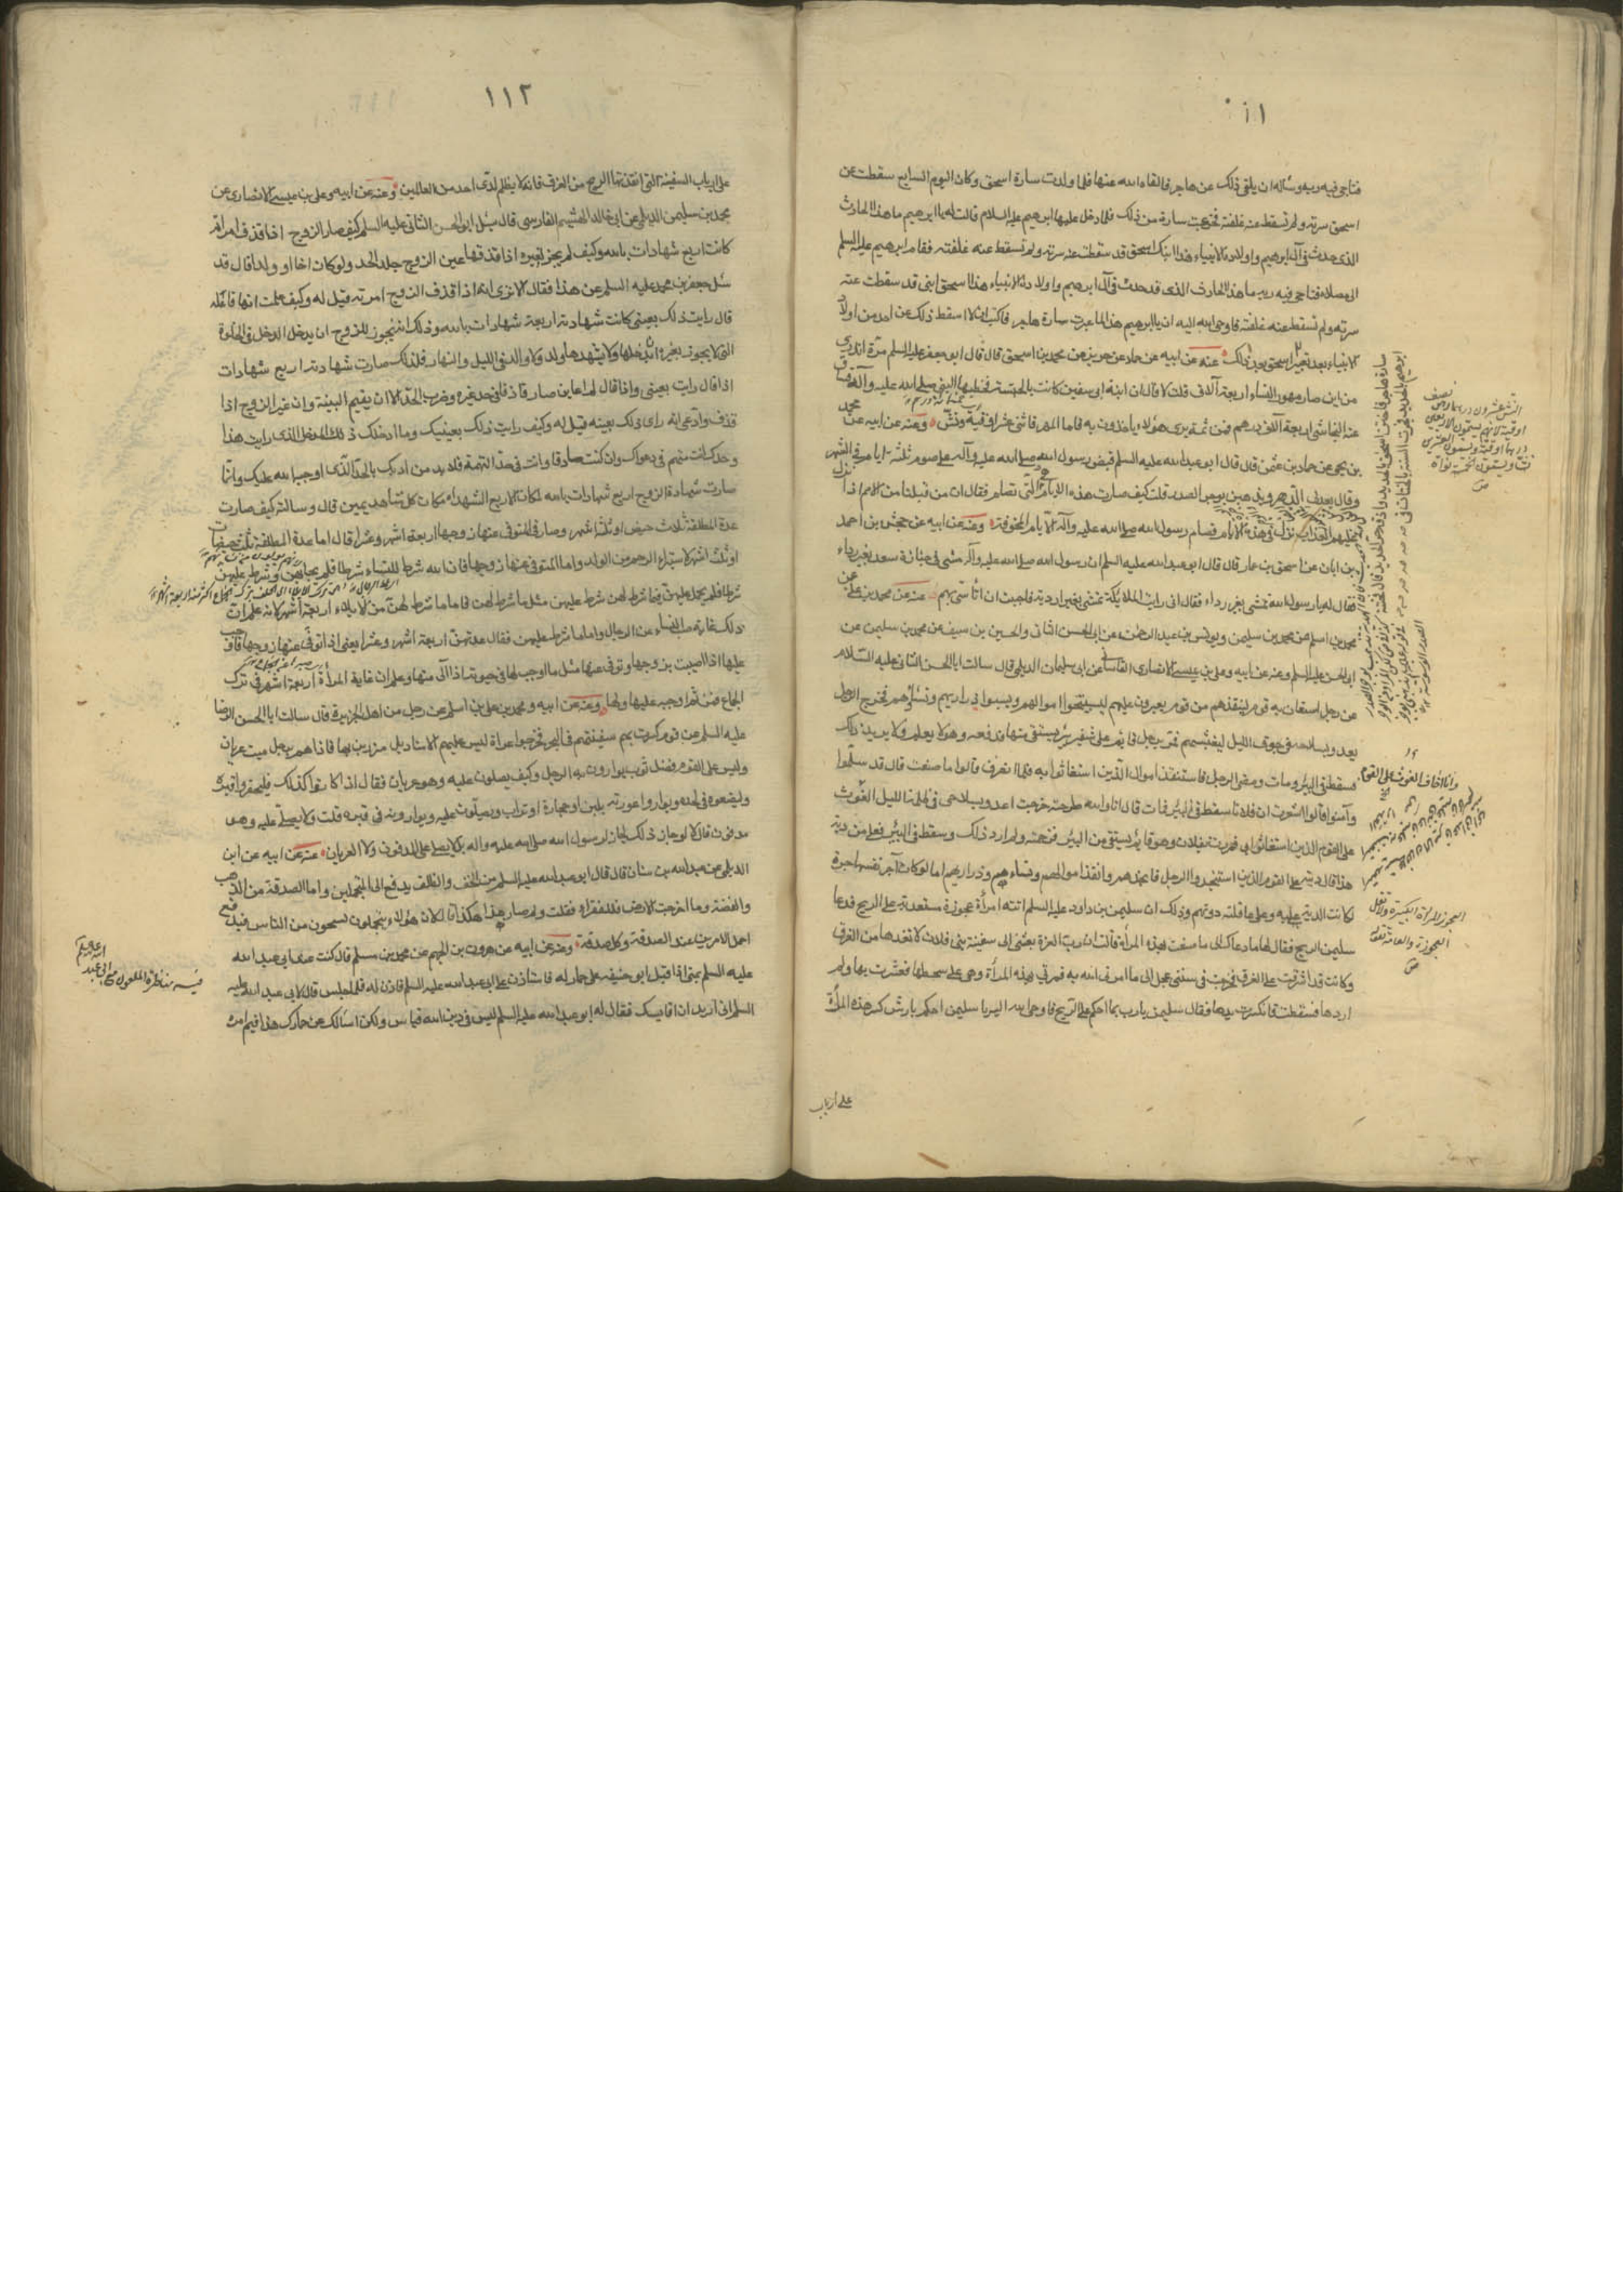 ١١١
فناجى فيه ربه وسأله ان يلقى ذلك عن هاجر فالقاه الله عنها فلما ولدت سارة اسحق وكان اليوم السابع سقطت عن
اسحق سرته ولم تسقط عنه غلفته فجزعت سارة من ذلك فلما دخل عليها ابرهيم عليه السلام قالت له يا ابرهيم ما هذا الحادث
الذى حدث فى آل ابرهيم واولاد الانبياء هذا ابنك اسحق قد سقطت عنه سرته ولم تسقط عنه غلفته فقام ابرهيم عليه السلم
الى مصلاه فناجى فيه ربه ما هذا الحادث الذى قد حدث فى آل ابرهيم واولاد الانبياء هذا اسحق ابنى قد سقطت عنه
سرته ولم تسقط عنه غلفته فاوحى الله اليه ان يا ابرهيم هذا لما عيرت سارة هاجر فآليت ان لا اسقط ذلك عن احد من اولاد
الانبياء بعد تعيير سارة هاجر عنه عن ابيه عن حماد عن حريز عن محمد بن اسحق قال قال ابو جعفر عليه السلم مرة اتدرى
من اين صار مهور النساء اربعة آلاف قلت لا قال ان ابنة ابى سفين كانت بالحبشة فخطبها النبى صلى الله عليه وآله فساق
عنه النجاشى اربعة آلاف درهم فمن ثم ترى هؤلاء ياخذون به فاما المهر فاثنى عشر اوقية ونش وعنه عن ابيه عن محمد
بن يحيى عن حماد بن عثمن قال قال ابو عبد الله عليه السلم قبض رسول الله صلى الله عليه وآله على صوم ثلثة ايام فى الشهر
وقال يعدلن الدهر ويذهبن بوحر الصدر قلت كيف صارت هذه الايام التى تصام فقال ان من قبلنا من الامم اذا نزل
عليهم العذاب نزل فى هذه الايام فصام رسول الله صلى الله عليه وآله الايام المخوفة وعنه عن ابيه عن محسن بن احمد
عن ابان عن اسحق بن عمار قال قال ابو عبد الله عليه السلم ان رسول الله صلى الله عليه وآله مشى فى جنازة سعد بغير رداء
فقال له يا رسول الله تمشى بغير رداء فقال انى رايت الملايكة تمشى بغير اردية فاحببت ان اتأسى بهم عنه عن محمد بن على عن
محمد بن اسلم عن محمد بن سليمن ويونس بن عبد الرحمن عن ابى الحسن الثانى والحسين بن سيف عن محمد بن سليمن عن
ابى الحسن عليه السلم وعنه عن ابيه وعلى بن عيسى الانصارى القاسانى عن ابى سليمان الديلمى قال سالت ابا الحسن الثانى عليه السلام
عن رجل استغاث به قوم لينقذهم من قوم يغيرون عليهم ليستبيحوا اموالهم ويسبوا ذراريهم ونساءهم فخرج الرجل
يعدو بسلاحه فى جوف الليل ليغيثهم فمر برجل قايم على شفير بئر يستقى منها فدفعه وهو لا يعلم ولا يريد ذلك
فسقط فى البئر ومات ومضى الرجل فاستنقذ اموال الذين استغاثوا به فلما انصرف قالوا ما صنعت قال قد سلموا
وآمنوا قالوا اشعرت ان فلانا سقط فى البئر فمات قال انا والله طرحته خرجت اعدو بسلاحى فى ظلمة الليل
على القوم الذين استغاثوا بى فمررت بفلان وهو قايم يستقى من البئر فزحمته ولم ارد ذلك وسقط فى البئر فعلى من دية
هذا قال ديته على القوم الذين استنجدوا الرجل فانجدهم وانقذ اموالهم ونساءهم وذراريهم اما لو كان آجر نفسه باجرة
لكانت الدية عليه وعلى عاقلته دونهم وذلك ان سليمن بن داود عليه السلم اتته امرأة عجوزة مستعدية على الريح فدعا
سليمن الريح فقال لها ما دعاك الى ما صنعت بهذه المرأة قالت ان رب العزة بعثنى الى سفينة بنى فلان لانقذها من الغرق
وكانت قد اشرفت على الغرق فخرجت فى سنتى عجلى الى ما امرنى الله به فمررت بهذه المرأة وهى على سطحها فعثرت بها ولم
اردها فسقطت فانكسرت يدها فقال سليمن يا رب بما احكم على الريح فاوحى الله اليه يا سليمن احكم بارش كسر هذه المرأة
على ارباب
العجوز المرأة الكبيرة ولا تقل
العجوزة والعامة تقوله
١١٢
على ارباب السفينة التى انقذتها الريح من الغرق فانه لا يظلم لدى احد من العالمين وعنه عن ابيه وعلى بن عيسى الانصارى عن
محمد بن سليمن الديلمى عن ابى خالد الهيثم الفارسى قال سئل ابو الحسن الثانى عليه السلم كيف صار الزوج اذا قذف امرأته
كانت اربع شهادات بالله وكيف لم يجز لغيره اذا قذفها غير الزوج جلد الحد ولو كان اخا او ولدا قال قد
سئل جعفر بن محمد عليه السلم عن هذا فقال الا ترى انه اذا قذف الزوج امرته قيل له وكيف علمت انها فاعلة
قال رايت ذلك بعينى كانت شهادته اربعة شهادات بالله وذلك انه يجوز للزوج ان يدخل المدخل فى الخلوة
التى لا يجوز لغيره ان يدخلها ولا يشهدها ولد ولا والد فى الليل والنهار فلذلك صارت شهادته اربع شهادات
اذا قال رايت بعينى واذا قال لم اعاين صار قاذفا فى حد غيره وضرب الحد الا ان يقيم البينة وان غير الزوج اذا
قذف وادعى انه راى ذلك بعينه قيل له وكيف رايت ذلك بعينيك وما ادخلك ذلك المدخل الذى رايت هذا
وحدك انت متهم فى دعواك وان كنت صادقا وانت فى حد التهمة فلابد من ادبك بالحد الذى اوجبه الله عليك وانما
صارت شهادة الزوج اربع شهادات بالله لمكان الاربع الشهداء مكان كل شاهد يمين قال وسالته كيف صارت
عدة المطلقة ثلاث حيض او ثلثة اشهر وصار فى المتوفى عنها زوجها اربعة اشهر وعشرا قال اما عدة المطلقة ثلث حيضات
او ثلث اشهر لاستبراء الرحم من الولد واما المتوفى عنها زوجها فان الله شرط للنساء شرطا فلم يحابهن وشرط عليهن
شرطا فلم يحمل عليهن فيما شرط لهن شرط عليهن مثل ما شرط لهن فاما ما شرط لهن من الايلاء اربعة اشهر لانه علم ان
ذلك غاية صبر النساء عن الرجال واما ما شرط عليهن فقال عدتهن اربعة اشهر وعشرا يعنى اذا توفى عنها زوجها فاوجب
عليها اذا اصيبت بزوجها وتوفى عنها مثل ما اوجب لها فى حيوته اذا آلى منها وعلم ان غاية المرأة اربعة اشهر فى ترك
الجماع فمن ثم اوجبه عليها ولها وعنه عن ابيه ومحمد بن على بن اسلم عن رجل من اهل الجزيرة قال سالت ابا الحسن الرضا
عليه السلم عن قوم كسرت بهم سفينتهم فى البحر فخرجوا عراة ليس عليهم الا مناديل متزرين بها فاذا هم برجل ميت عريان
وليس على القوم فضل ثوب يوارون به الرجل وكيف يصلون عليه وهو عريان فقال اذا كانوا كذلك فليحفروا قبره
وليضعوه فى لحده ويواروا عورته بلبن او حجارة او تراب ويصلون عليه ويوارونه فى قبره قلت ولا يصلى عليه وهو
مدفون قال لا لو جاز ذلك لجاز لرسول الله صلى الله عليه واله لا يصلى على المدفون ولا العريان عنه عن ابيه عن ابن
الديلمى عن عبد الله بن سنان قال قال ابو عبد الله عليه السلم من الخف والظلف يدفع الى المتجملين واما الصدقة من الذهب
والفضة وما اخرجت الارض فللفقراء فقلت ولم صار هذا هكذا قال لان هؤلاء يتجملون يستحيون من الناس فيدفع
اجمل الامرين عند الصدقة وكل صدقة وعنه عن ابيه عن هرون بن الجهم عن محمد بن مسلم قال كنت عند ابى عبد الله
عليه السلم بمنى اذا اقبل ابو حنيفة على حمار له فاستاذن على ابى عبد الله عليه السلم فاذن له فلما جلس قال لابى عبد الله عليه
السلم انى اريد ان اقايسك فقال له ابو عبد الله عليه السلم ليس فى دين الله قياس ولكن اسالك عن حمارك هذا فيم امره
فيه مناظرة الملعون مع ابى عبد
الله عليه السلم